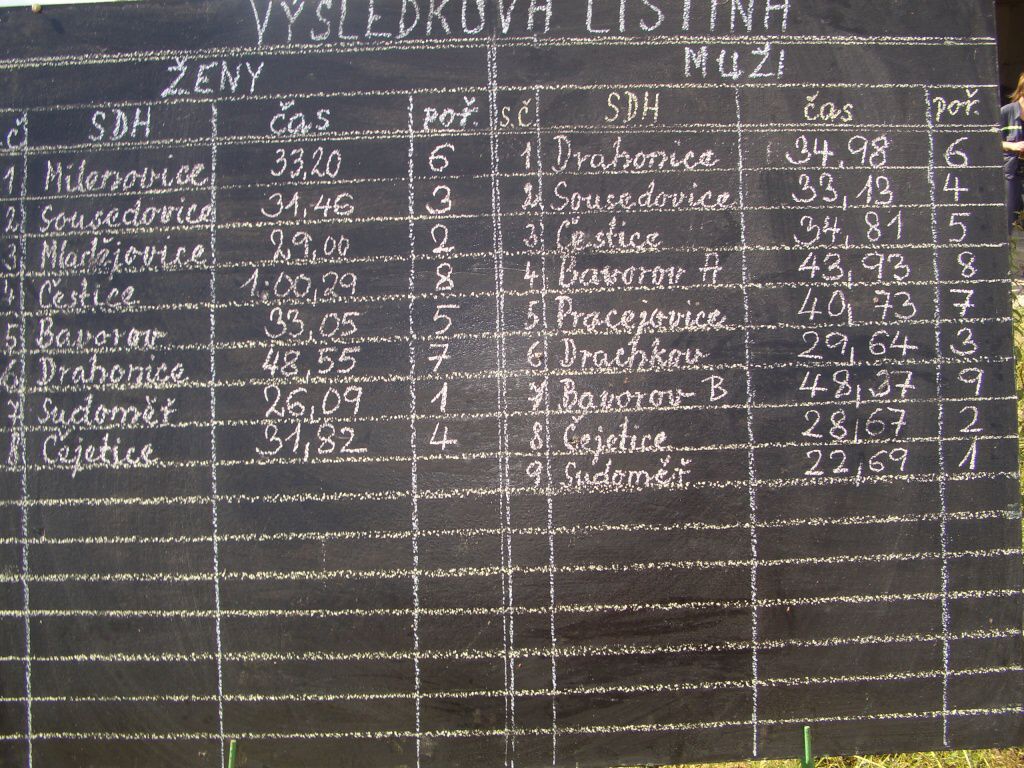 VÝSLEDKOVÁ LISTINA
ŽENY MUŽI
č SDH čas poř. sč SDH čas poř.
1 Milenovice 33,20 6 1 Drahonice 34,98 6
2 Sousedovice 31,46 3 2 Sousedovice 33,13 4
3 Mladějovice 29,00 2 3 Čestice 34,81 5
4 Čestice 1:00,29 8 4 Bavorov A 43,93 8
5 Bavorov 33,05 5 5 Pracejovice 40,73 7
6 Drahonice 48,55 7 6 Drachkov 29,64 3
7 Sudoměř 26,09 1 7 Bavorov B 48,37 9
8 Čejetice 31,82 4 8 Čejetice 28,67 2
9 Sudoměř 22,69 1